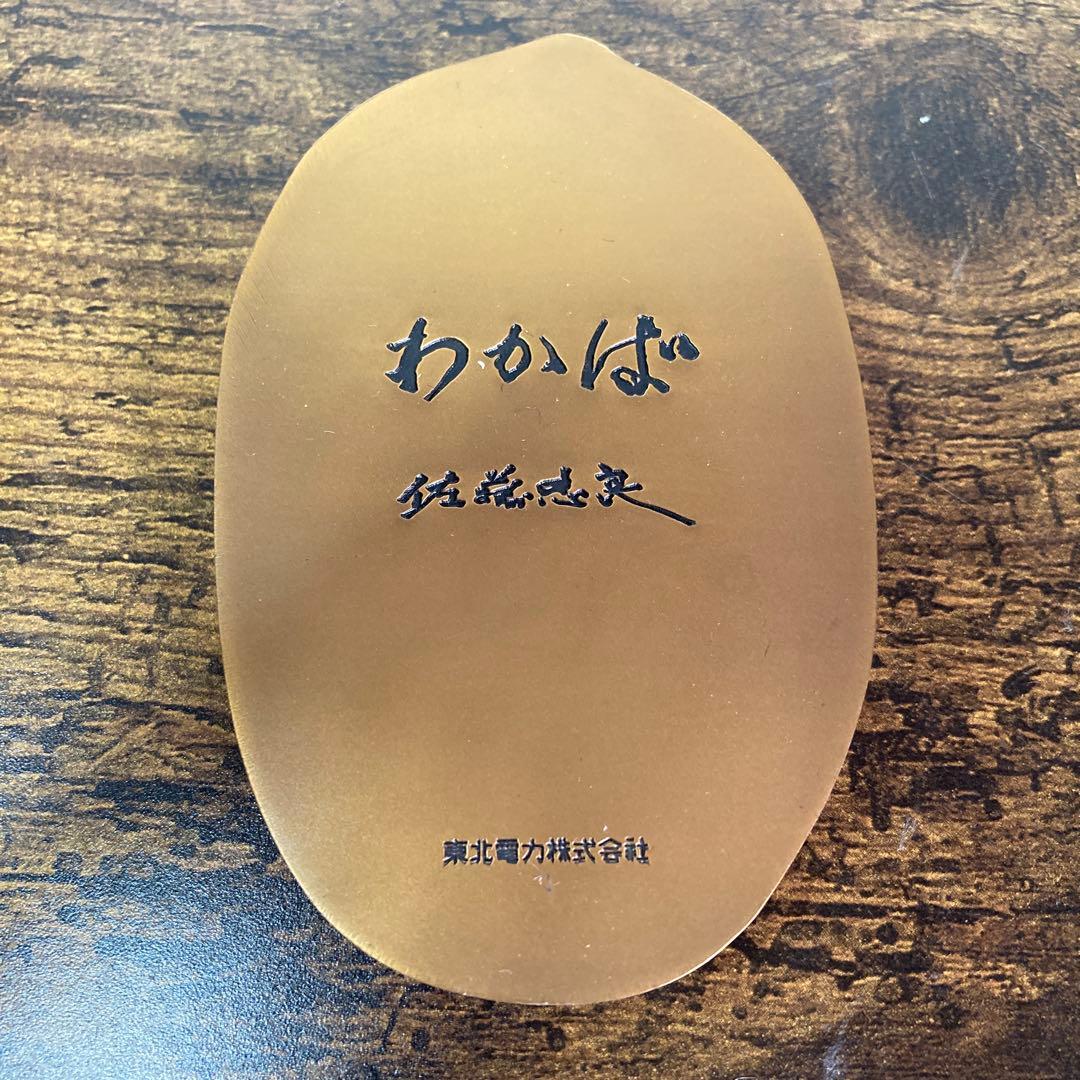 わかば
佐藤忠良
東北電力株式会社